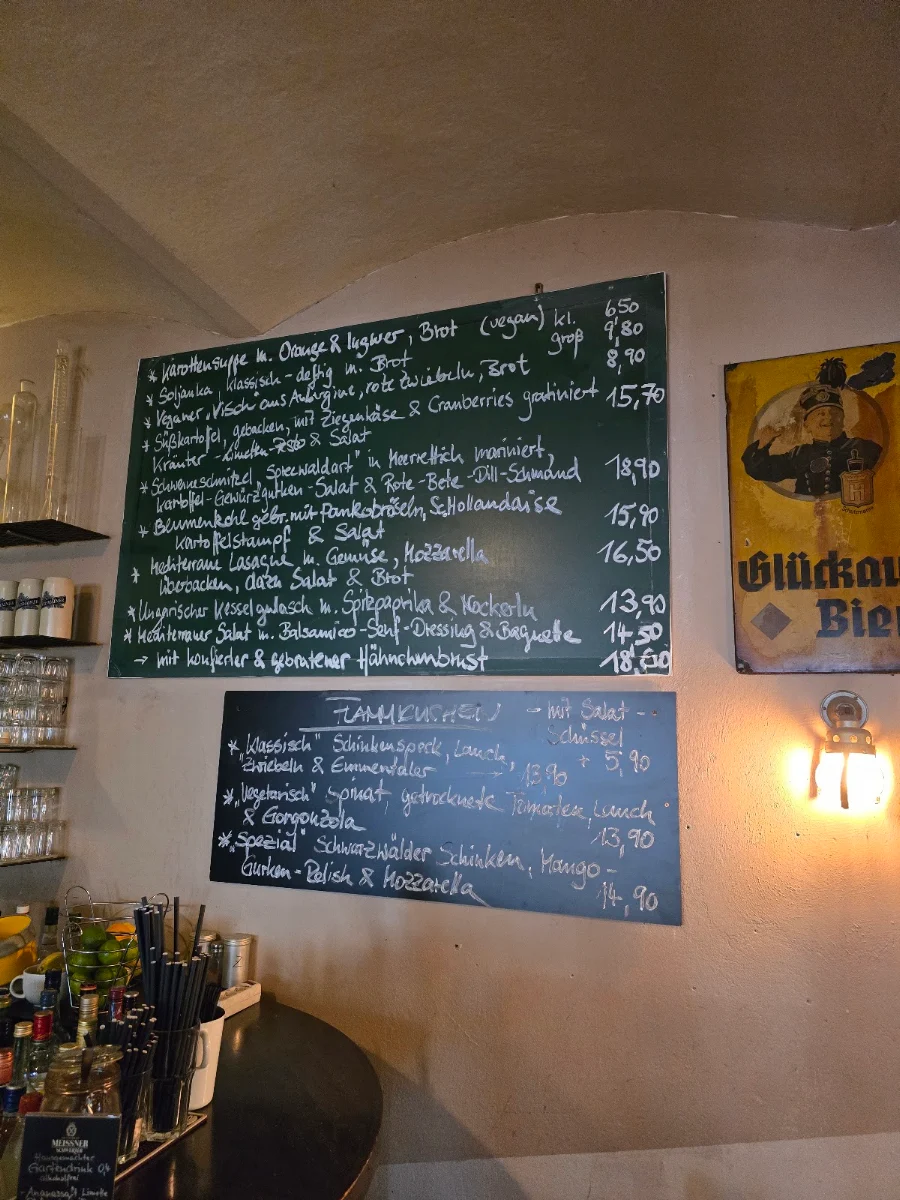 * Karottensuppe m. Orange & Ingwer, Brot (vegan) kl. 6,50
groß 9,80
* Soljanka klassisch - deftig m. Brot 8,90
* Veganer „Visch" aus Aubergine, rote Zwiebeln, Brot
* Süßkartoffel, gebacken, mit Ziegenkäse & Cranberries gratiniert 15,70
Kräuter - Limetten-Pesto & Salat
* Schweineschnitzel „Spreewaldart" in Meerrettich mariniert,
Kartoffel-Gewürzgurken-Salat & Rote-Bete-Dill-Schmand 18,90
* Blumenkohl gebr. mit Pankobröseln, Sc. Hollandaise
Kartoffelstampf & Salat 15,90
* Mediterrane Lasagne m. Gemüse, Mozzarella 16,50
überbacken, dazu Salat & Brot
* Ungarischer Kesselgulasch m. Spitzpaprika & Nockerln 13,90
* Mediterraner Salat m. Balsamico-Senf-Dressing & Baguette 14,50
→ mit konfierter & gebratener Hähnchenbrust
FLAMMKUCHEN - mit Salat -
Schüssel
+ 5,90
* „Klassisch" Schinkenspeck, Lauch,
Zwiebeln & Emmentaler → 13,90
* „Vegetarisch" Spinat, getrocknete Tomaten, Lauch
& Gorgonzola 13,90
* „Spezial" Schwarzwälder Schinken, Mango-
Gurken-Relish & Mozzarella 14,90
Glückau
Bier
MEISSNER
SCHWERTER
Hausgemachter
Gartendrink 0,4
alkoholfrei
- Ananassaft Limette